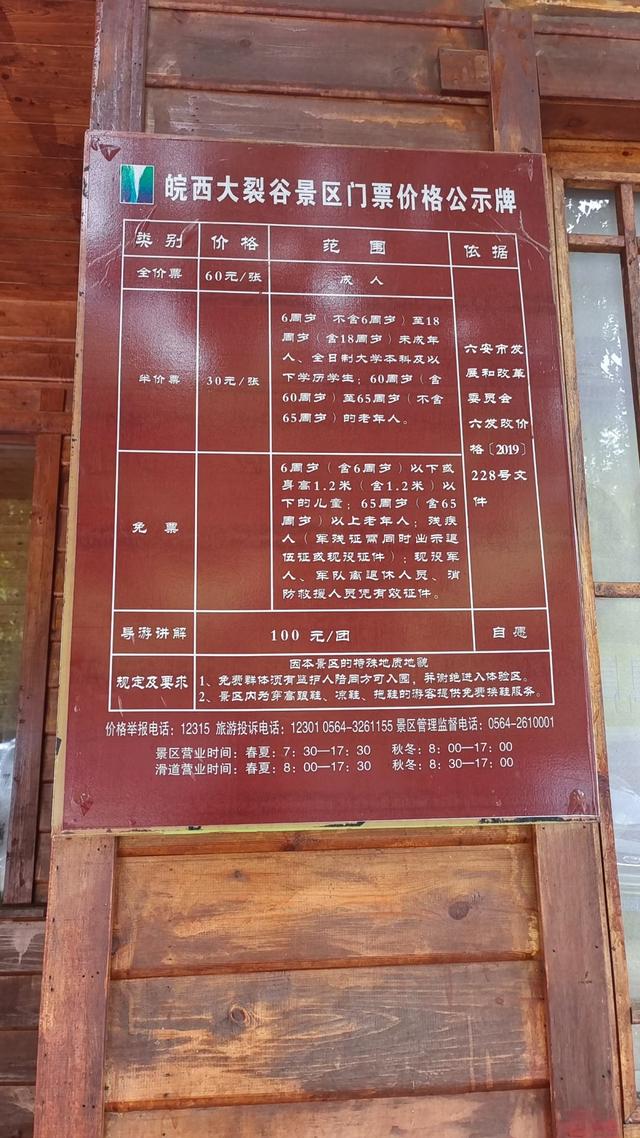 皖西大裂谷景区门票价格公示牌
类别 价格 范围 依据
全价票 60元/张 成人
半价票 30元/张
6周岁（不含6周岁）至18
周岁（含18周岁）未成年
人、全日制大学本科及以
下学历学生；60周岁（含
60周岁）至65周岁（不含
65周岁）的老年人。
六安市发
展和改革
委员会
六发改价
格〔2019〕
228号文
件
免票
6周岁（含6周岁）以下或
身高1.2米（含1.2米）以
下的儿童；65周岁（含65
周岁）以上老年人；残疾
人（军残证需同时出示退
伍证或现役证件）；现役军
人、军队离退休人员、消
防救援人员凭有效证件。
导游讲解 100 元/团 自愿
规定及要求
因本景区的特殊地质地貌
1、免费群体须有监护人陪同方可入园，并谢绝进入体验区。
2、景区内为穿高跟鞋、凉鞋、拖鞋的游客提供免费换鞋服务。
价格举报电话：12315 旅游投诉电话：12301 0564-3261155 景区管理监督电话：0564-2610001
景区营业时间：春夏：7：30—17：30 秋冬：8：00—17：00
滑道营业时间：春夏：8：00—17：30 秋冬：8：30—17：00